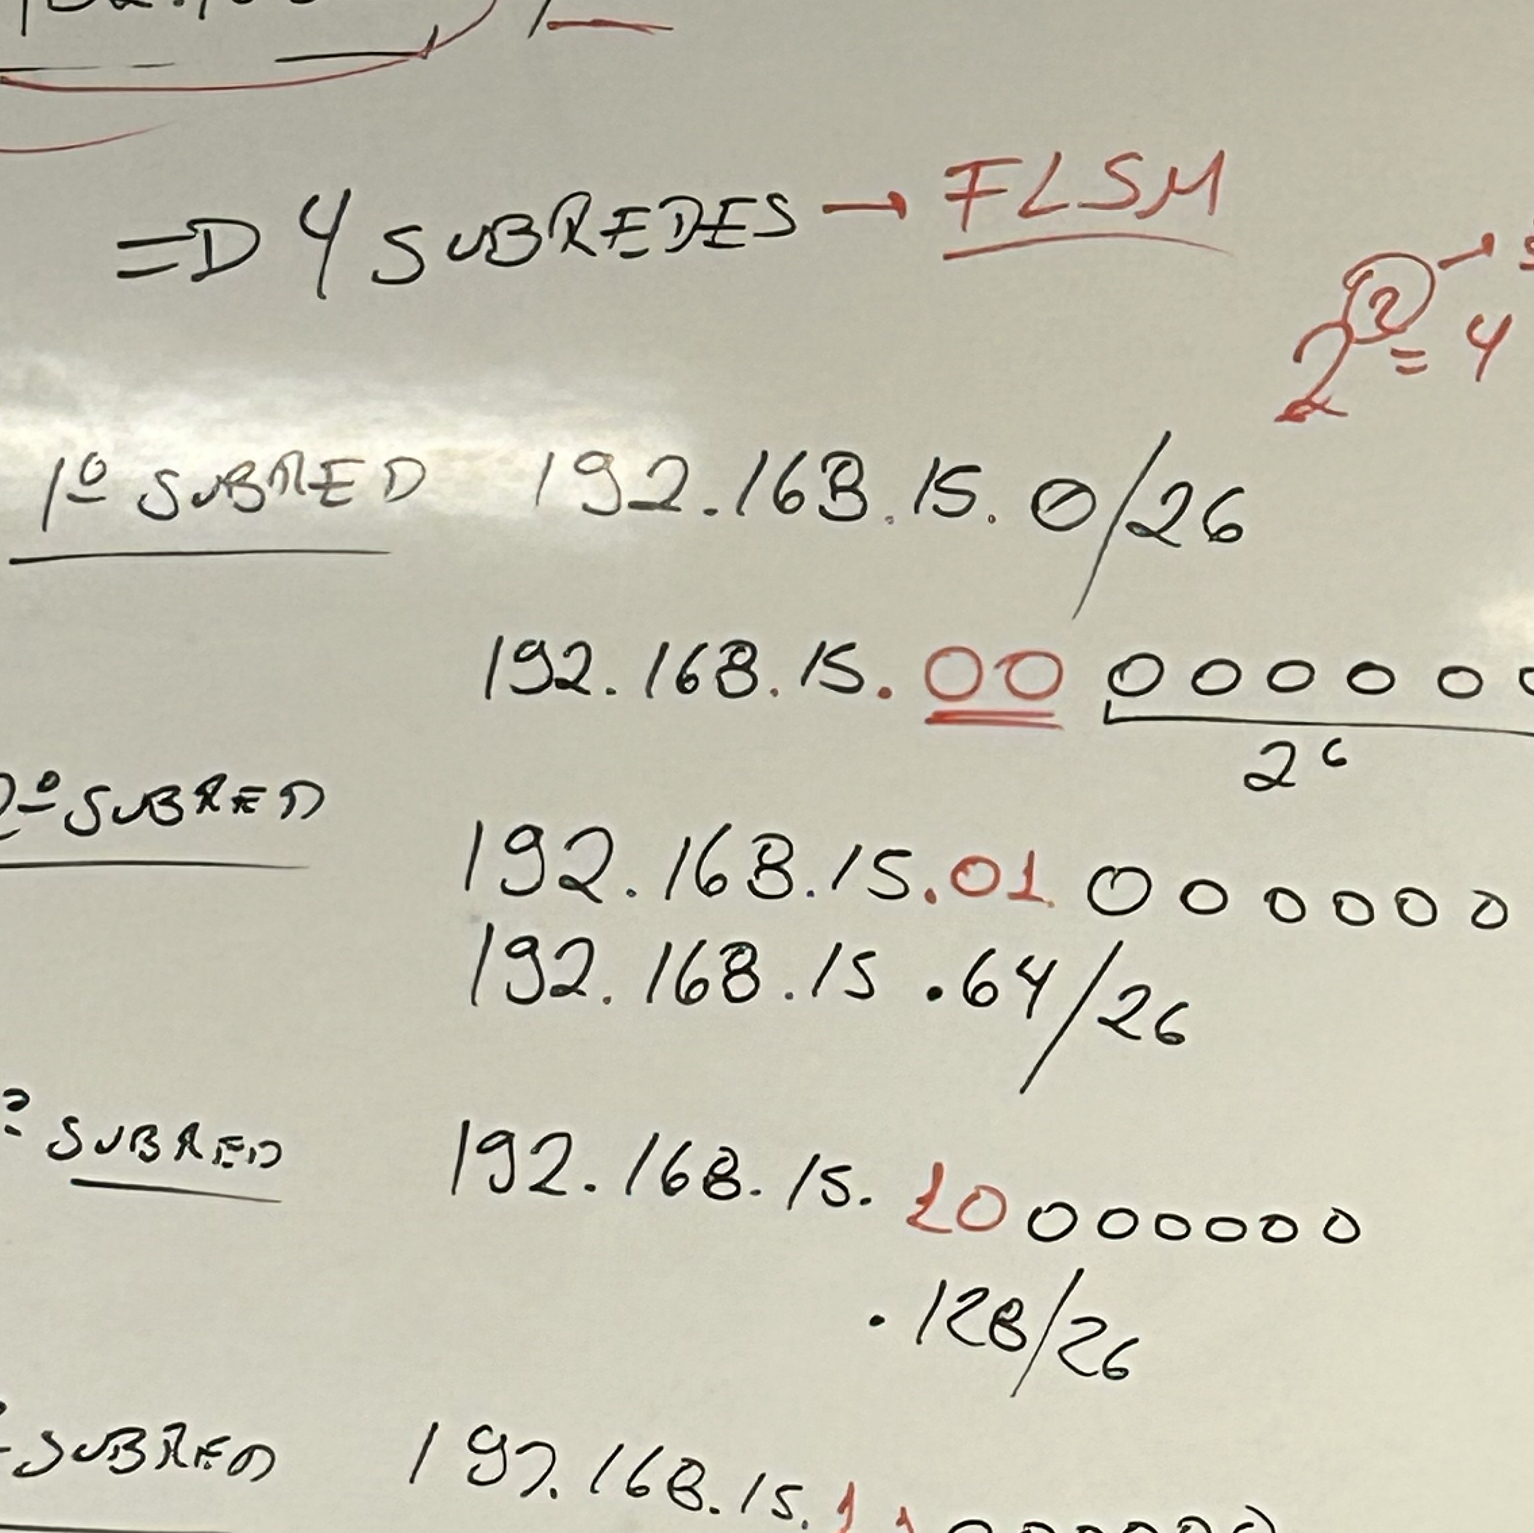 =D 4 SUBREDES → FLSM
2² = 4
1º SUBRED 192.168.15.0/26
192.168.15.00 000000
2⁶
2º SUBRED
192.168.15.01 000000
192.168.15.64/26
SUBRED 192.168.15.10000000
.128/26
SUBRED 192.168.15.11000000